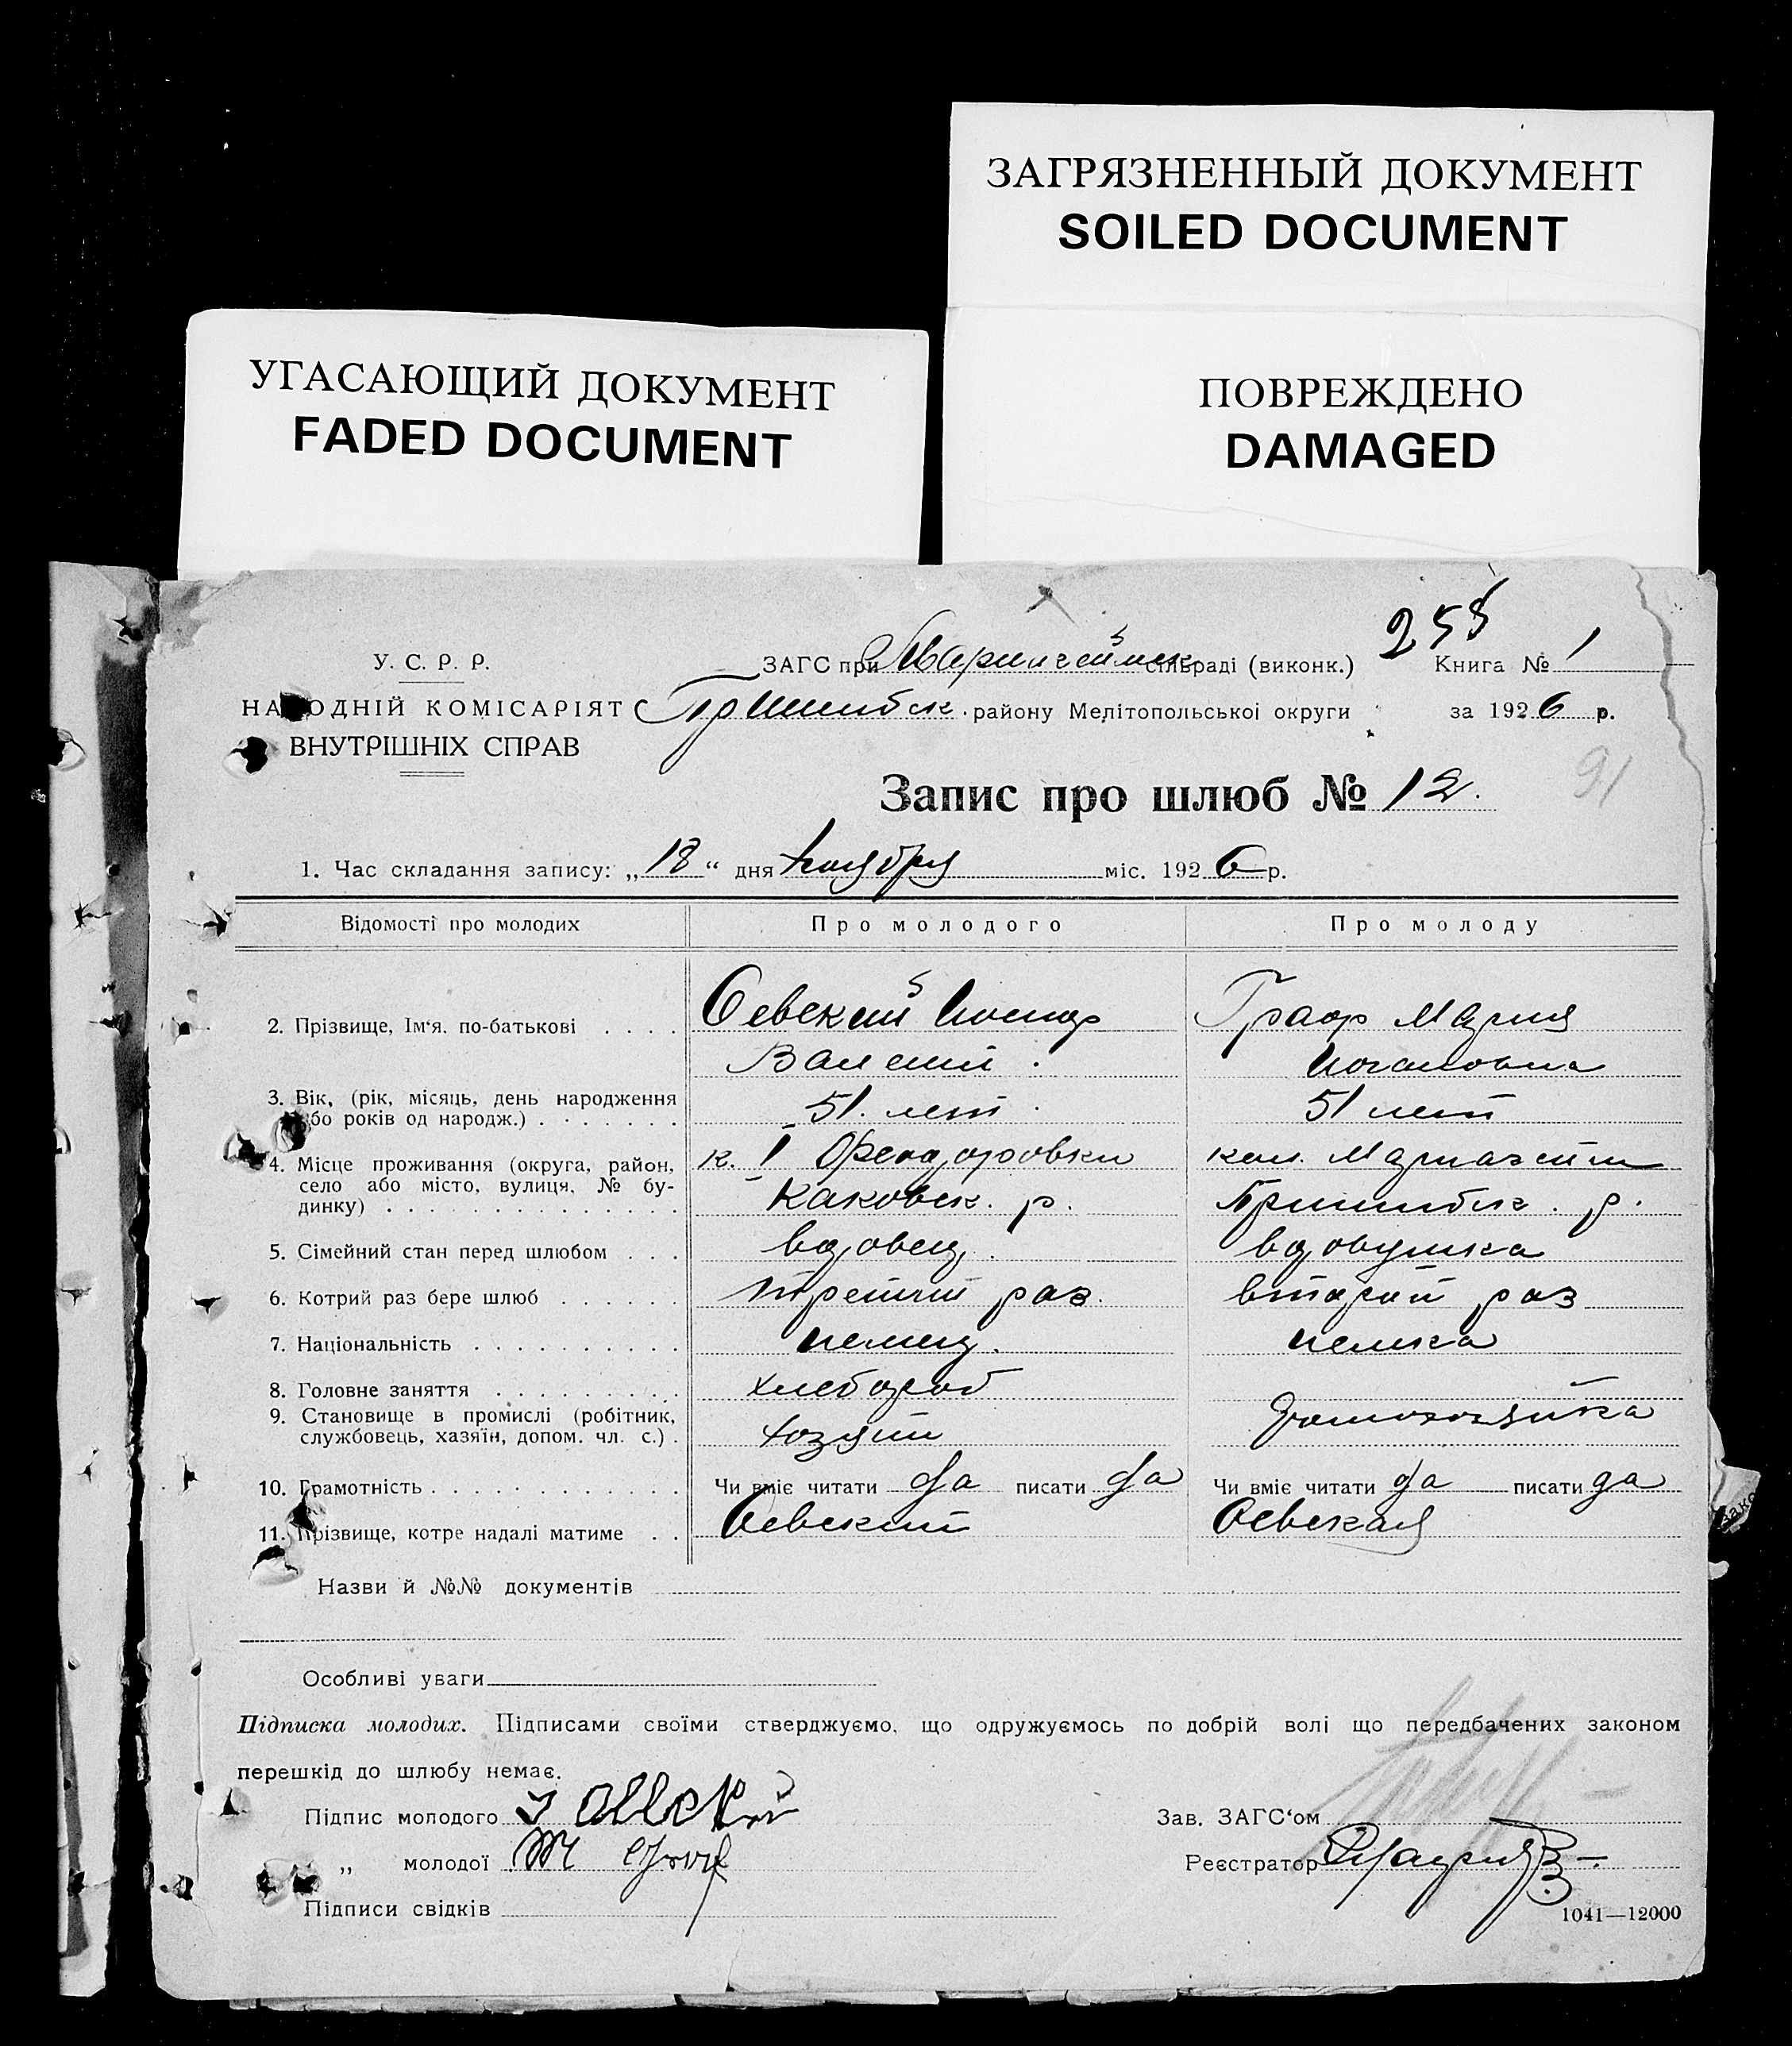 ЗАГРЯЗНЕННЫЙ ДОКУМЕНТ
SOILED DOCUMENT
УГАСАЮЩИЙ ДОКУМЕНТ
FADED DOCUMENT
ПОВРЕЖДЕНО
DAMAGED
255
У. С. Р. Р.
ЗАГС при сільраді (виконк.) Книга № 1
НАРОДНІЙ КОМІСАРІЯТ
Пришибск. району Мелітопольської округи за 1926 р.
ВНУТРІШНІХ СПРАВ
Запис про шлюб № 12.
91
1. Час складання запису: „18“ дня Ноября міс. 1926 р.
Відомості про молодих Про молодого Про молоду
2. Прізвище, Ім‘я, по-батькові . . . . Осевский Иосиф Граф Мария
Иогановна
3. Вік, (рік, місяць, день народження
або років од народж.) . . . . . . . 51. лет. 51 лет
4. Місце проживання (округа, район, к. I Федоровки кол. Мариагейм
село або місто, вулиця, № бу- Каховск. р. Пришибск. р.
динку) . . . . . . . . . . . . . .
5. Сімейний стан перед шлюбом . . . вдовец. вдовушка
6. Котрий раз бере шлюб . . . . . . третий раз. второй раз
7. Національність . . . . . . . . . . немец. немка
8. Головне заняття . . . . . . . . . хлебороб
9. Становище в промислі (робітник, домохозяйка
службовець, хазяїн, допом. чл. с.) . хозяин
10. Грамотність . . . . . . . . . . . . Чи вміє читати да писати да Чи вміє читати да писати да
11. Прізвище, котре надалі матиме . . Осевский Осевская
Назви й №№ документів
Особливі уваги
Підписка молодих. Підписами своїми стверджуємо, що одружуємось по добрій волі що передбачених законом
перешкід до шлюбу немає.
Підпис молодого Зав. ЗАГС‘ом
„ молодої М Граф Реєстратор
Підписи свідків
1041—12000